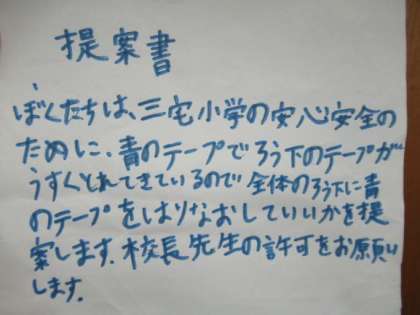 提案書
ぼくたちは、三宅小学の安心安全の
ために、青のテープでろう下のテープが
うすくとれてきているので全体のろう下に青
のテープをはりなおしていいかを提
案します。校長先生の許可をお願い
します。